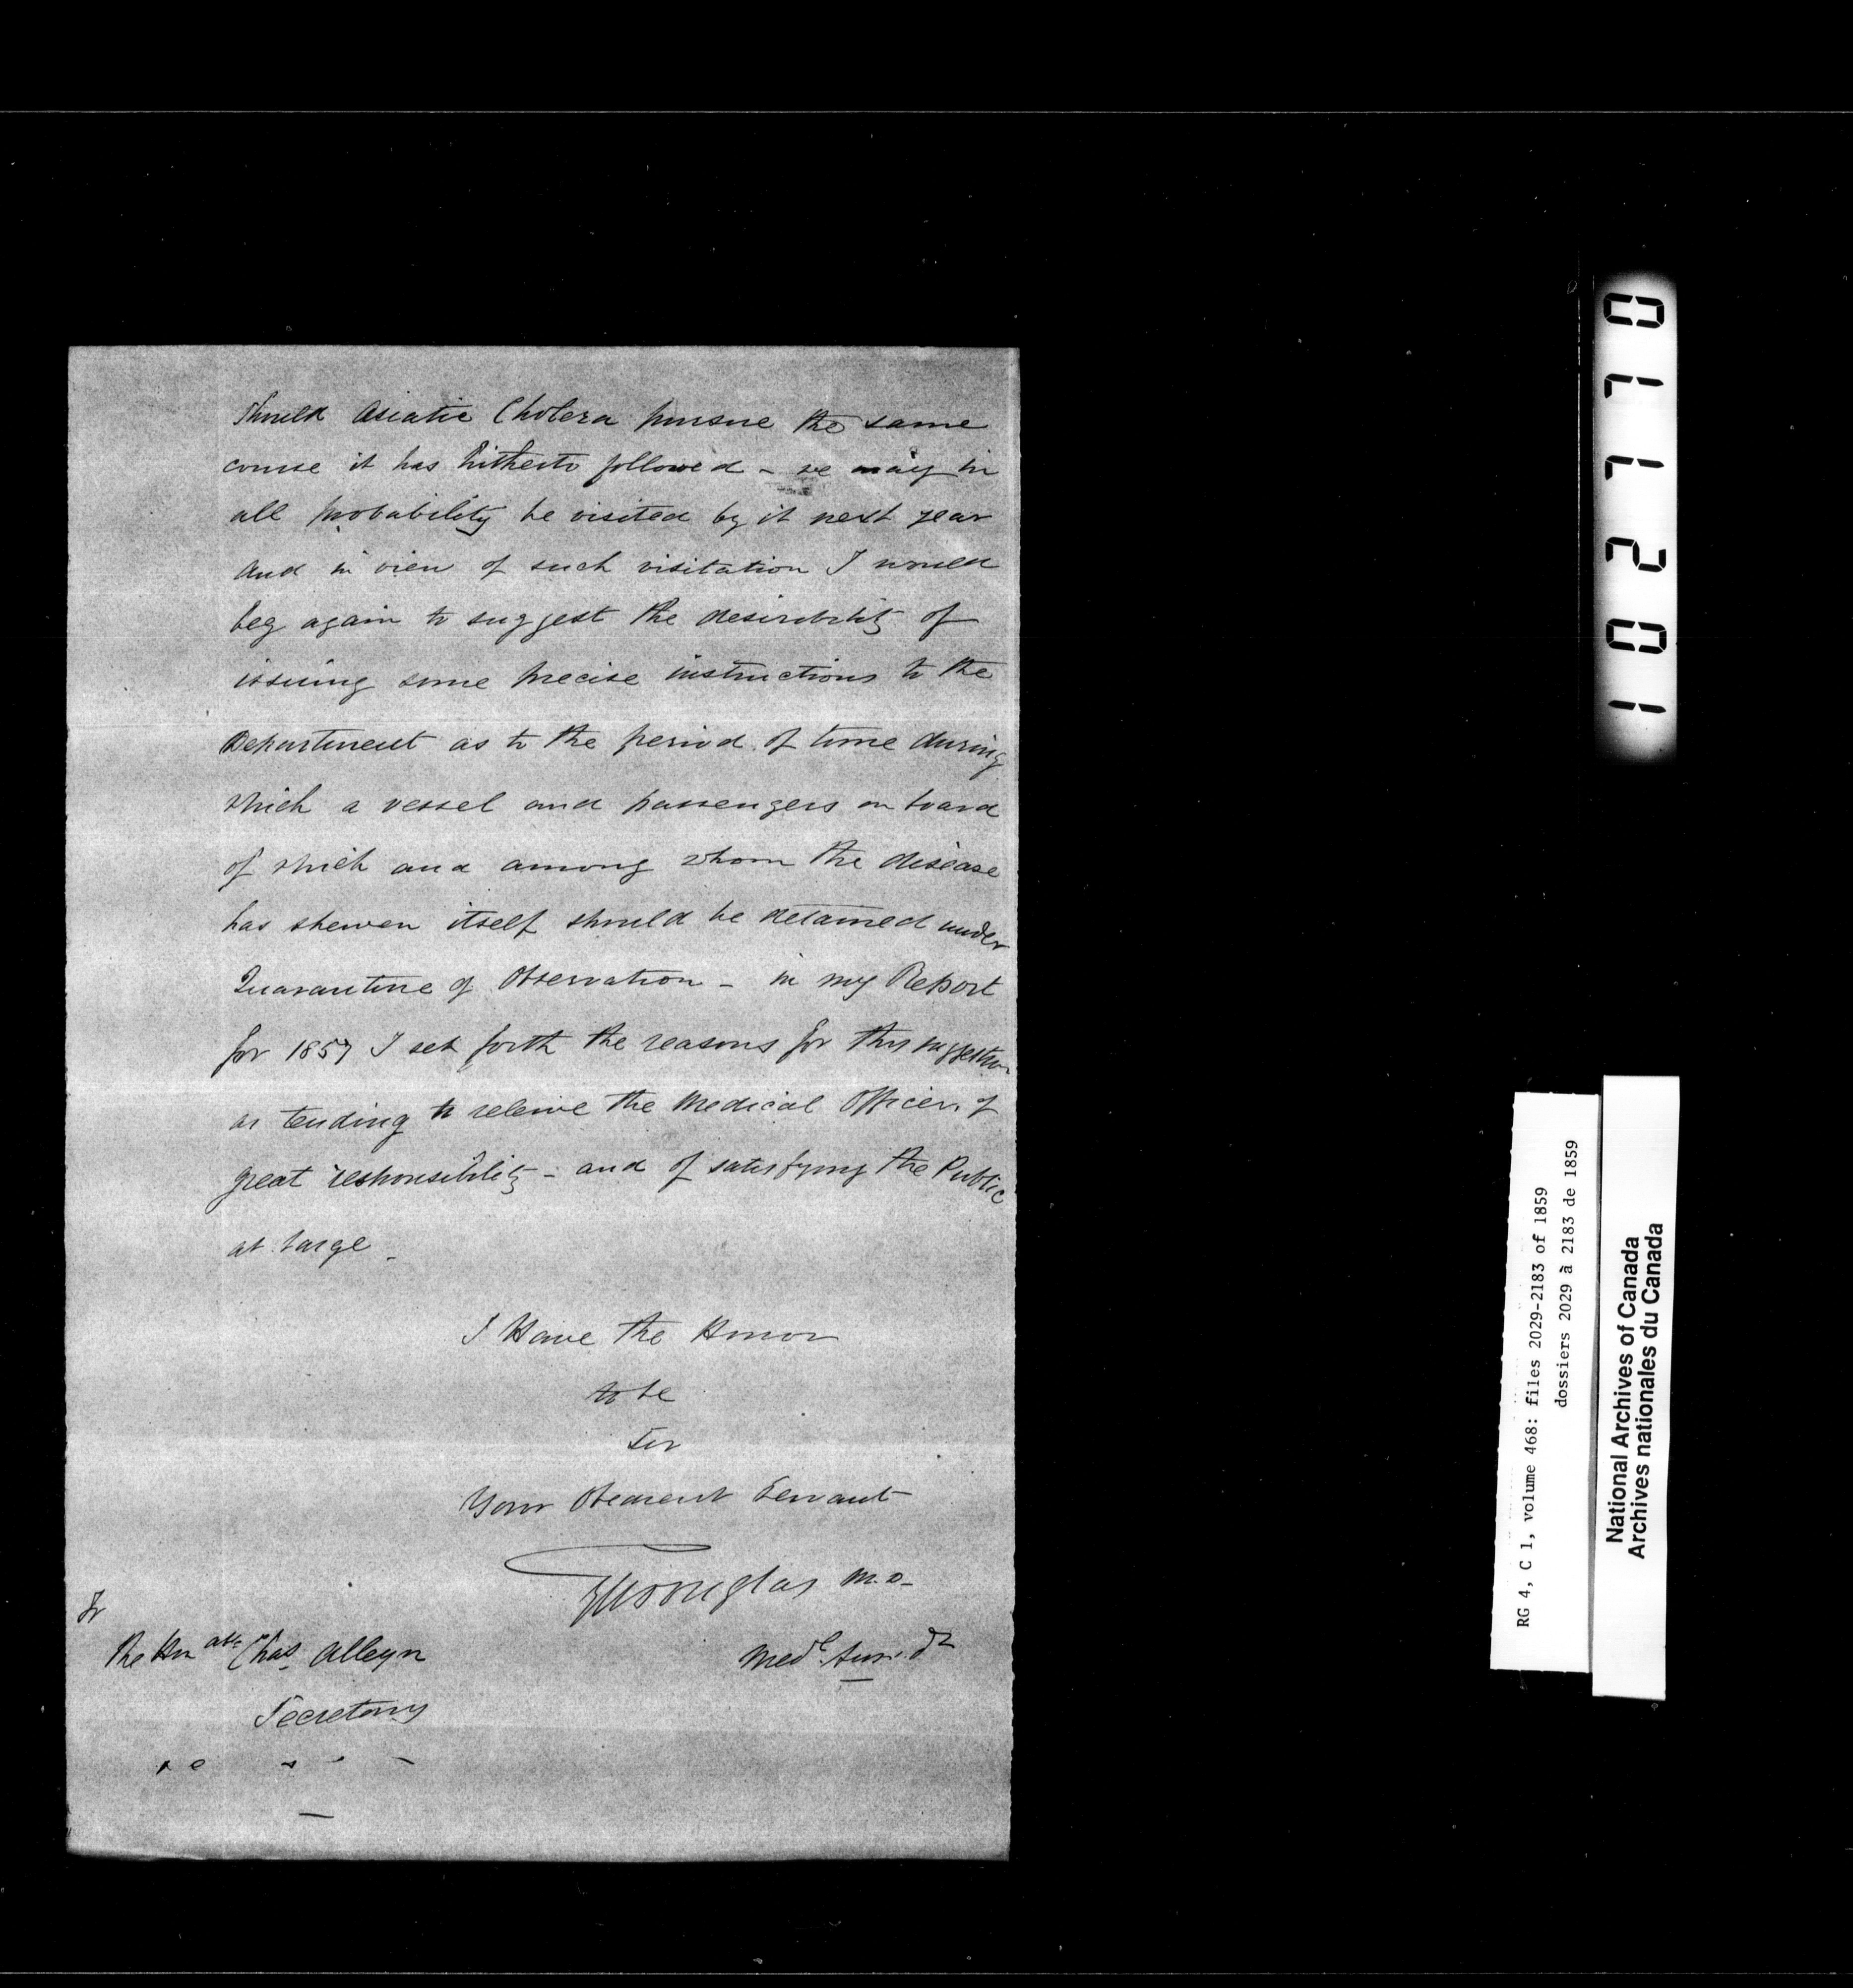 Should Asiatic Cholera pursue the same
course it has hitherto followed – we may in
all probability be visited by it next year
and in view of such visitation I would
beg again to suggest the desirability of
issuing some precise instructions to the
Department as to the period of time during
which a vessel and passengers on board
of which and among whom the disease
has shewen itself should be detained under
Quarantine of Observation – in my Report
for 1857 I set forth the reasons for this suggestion
as tending to releive the Medical Officers of
great responsibility – and of satisfying the Public
at large –
I Have the Honor
to be
Sir
Your Obedient Servant
GMDouglas M.D–
To
The Honable Chas Alleyn
Medl Supr.dt
Secretary
1021770
RG 4, C 1, volume 468: files 2029-2183 of 1859
dossiers 2029 à 2183 de 1859
National Archives of Canada
Archives nationales du Canada